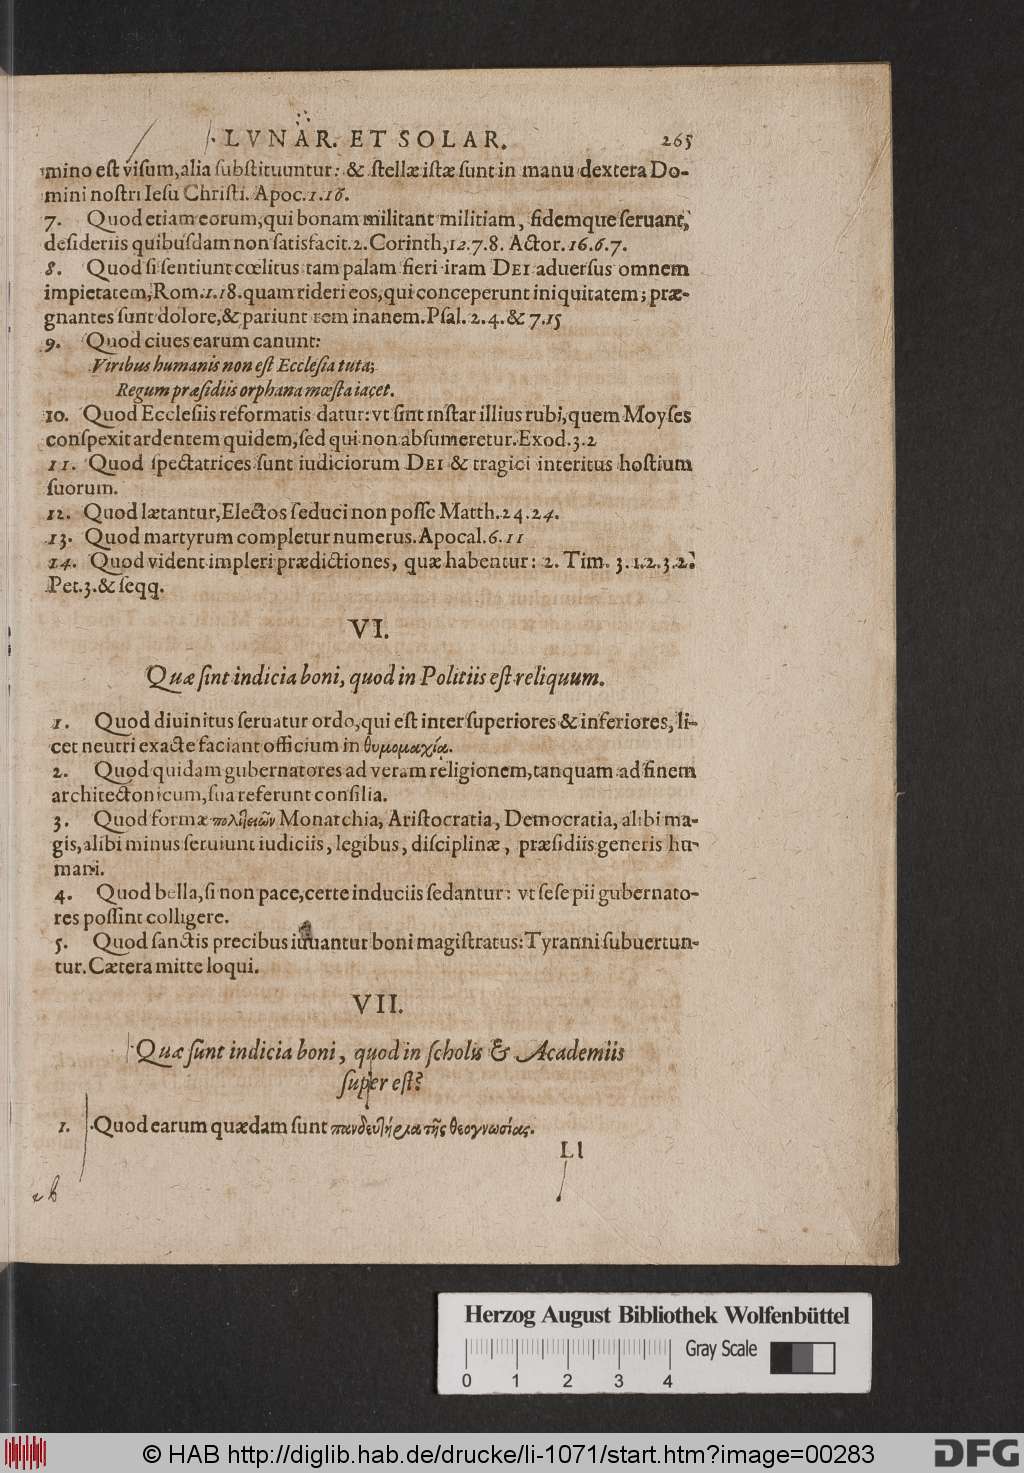 LVNAR. ET SOLAR. 265
mino est visum, alia substituuntur: & stellæ istæ sunt in manu dextera Do-
mini nostri Iesu Christi. Apoc.1.16.
7. Quod etiam eorum, qui bonam militant militiam, fidemque seruant,
desideriis quibusdam non satisfacit. 2. Corinth, 12.7.8. Actor. 16.6.7.
8. Quod si sentiunt cœlitus tam palam fieri iram DEI aduersus omnem
impietatem, Rom.1.18. quam rideri eos, qui conceperunt iniquitatem; præ-
gnantes sunt dolore, & pariunt rem inanem. Psal. 2.4. & 7.15
9. Quod ciues earum canunt:
Viribus humanis non est Ecclesia tuta;
Regum præsidiis orphana mœsta iacet.
10. Quod Ecclesiis reformatis datur: vt sint instar illius rubi, quem Moyses
conspexit ardentem quidem, sed qui non absumeretur. Exod.3.2
11. Quod spectatrices sunt iudiciorum DEI & tragici interitus hostium
suorum.
12. Quod lætantur, Electos seduci non posse Matth. 24.24.
13. Quod martyrum completur numerus. Apocal. 6.11
14. Quod vident impleri prædictiones, quæ habentur: 2. Tim. 3.1.2.3.2.
Pet.3. & seqq.
VI.
Quæ sint indicia boni, quod in Politiis est reliquum.
1. Quod diuinitus seruatur ordo, qui est inter superiores & inferiores, li-
cet neutri exacte faciant officium in θυμομαχίᾳ.
2. Quod quidam gubernatores ad veram religionem, tanquam ad finem
architectonicum, sua referunt consilia.
3. Quod formæ πολιτειῶν Monarchia, Aristocratia, Democratia, alibi ma-
gis, alibi minus seruiunt iudiciis, legibus, disciplinæ, præsidiis generis hu-
mani.
4. Quod bella, si non pace, certe induciis sedantur: vt sese pii gubernato-
res possint colligere.
5. Quod sanctis precibus iuuantur boni magistratus: Tyranni subuertun-
tur. Cætera mitte loqui.
VII.
Quæ sunt indicia boni, quod in scholis & Academiis
super est?
1. Quod earum quædam sunt παιδευτήρια τῆς θεογνωσίας.
Ll
Herzog August Bibliothek Wolfenbüttel
Gray Scale
0 1 2 3 4
© HAB http://diglib.hab.de/drucke/li-1071/start.htm?image=00283
DFG